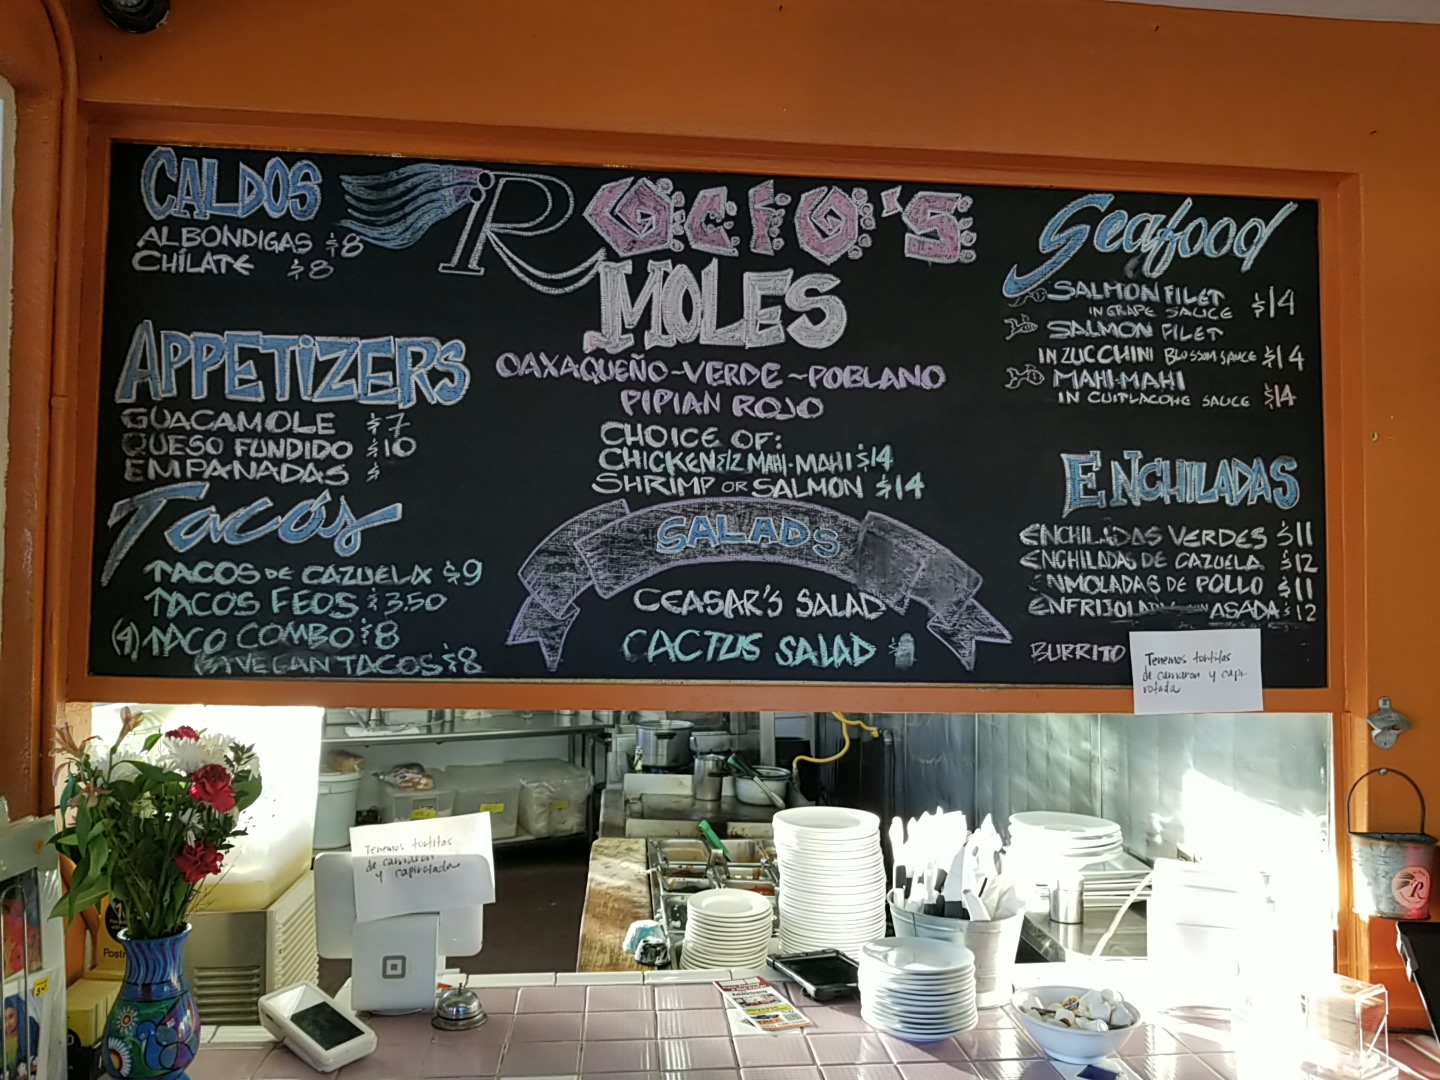 CALDOS
ALBONDIGAS $8
CHILATE $8
APPETiZERS
GUACAMOLE $7
QUESO FUNDIDO $10
EMPANADAS $
Tacos
TACOS DE CAZUELA $9
TACOS FEOS $3.50
(4) TACO COMBO $8
VEGAN TACOS $8
R ROCIO'S
MOLES
OAXAQUEÑO~VERDE~POBLANO
PIPIAN ROJO
CHOICE OF:
CHICKEN $12 MAHI-MAHI $14
SHRIMP OR SALMON $14
SALADS
CEASAR'S SALAD
CACTUS SALAD $
Seafood
SALMON FILET $14
IN GRAPE SAUCE
SALMON FILET
IN ZUCCHINI BLOSSOM SAUCE $14
MAHI-MAHI
IN CUITLACOHE SAUCE $14
ENCHILADAS
ENCHILADAS VERDES $11
ENCHILADAS DE CAZUELA $12
ENMOLADAS DE POLLO $11
ASADA $12
BURRITO
Tenemos tortitas
de camaron y capi-
rotada
Tenemos tortitas
de camaron
y capirotada
R